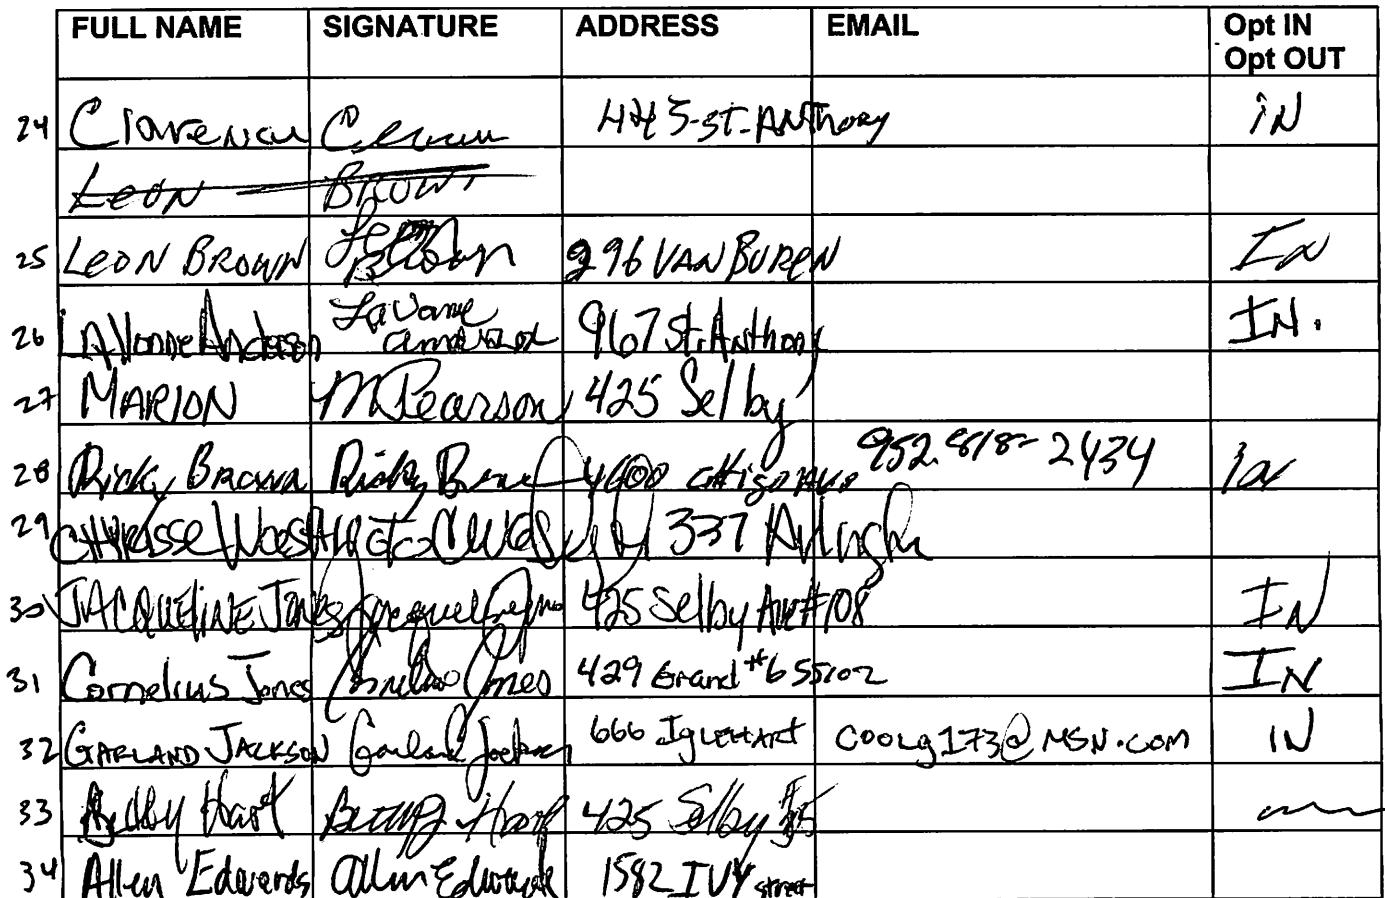 FULL NAME SIGNATURE ADDRESS EMAIL Opt IN
Opt OUT
24 St. Anthony iN
LEON BROWN
25 LEON BROWN Leon Brown 296 VAN BUREN IN
26 LAVonne Anderson LaVonne 967 St. Anthony IN.
27 MARION M Pearson 425 Selby
28 Ricky Brown Ricky 952.818-2434 in
29 337
30 JACQUELINE JONES 425 Selby Ave #108 IN
31 Cornelius Jones Jones 429 Grand #6 55102 IN
32 GARLAND JACKSON Garland Jackson 666 IGLEHART coolg173@MSN.com IN
33 Hart 425 Selby
34 Allen Edwards Allen Edwards 1582 IVY street